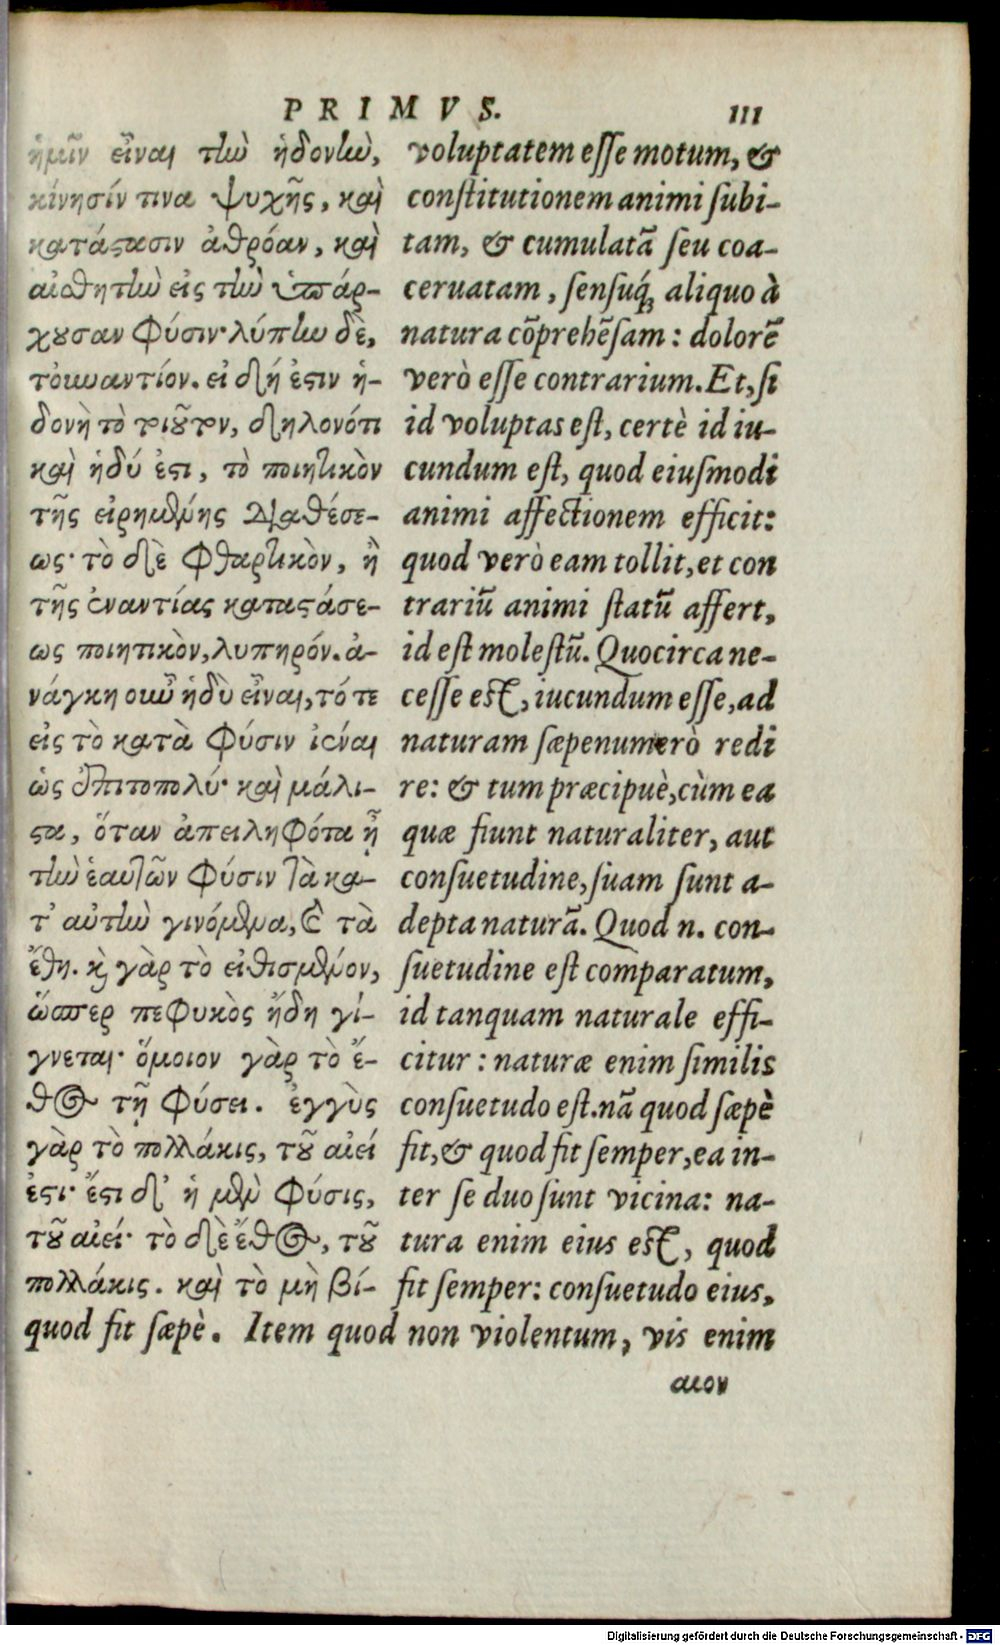 PRIMVS. 111
ἡμῖν εἶναι τὴν ἡδονὴν,
κίνησίν τινα ψυχῆς, καὶ
κατάστασιν ἀθρόαν, καὶ
αἰσθητὴν εἰς τὴν ὑπάρ-
χουσαν φύσιν· λύπην δὲ,
τοὐναντίον. εἰ δή ἐστιν ἡ-
δονὴ τὸ τοιοῦτον, δηλονότι
καὶ ἡδύ ἐστι, τὸ ποιητικὸν
τῆς εἰρημένης διαθέσε-
ως· τὸ δὲ φθαρτικὸν, ἢ
τῆς ἐναντίας καταστάσε-
ως ποιητικὸν, λυπηρόν. ἀ-
νάγκη οὖν ἡδὺ εἶναι, τό τε
εἰς τὸ κατὰ φύσιν ἰέναι
ὡς ἐπιτοπολύ· καὶ μάλι-
στα, ὅταν ἀπειληφότα ᾖ
τὴν ἑαυτῶν φύσιν τὰ κα-
τ' αὐτὴν γινόμενα, καὶ τὰ
ἔθη. καὶ γὰρ τὸ εἰθισμένον,
ὥσπερ πεφυκὸς ἤδη γί-
γνεται· ὅμοιον γὰρ τὸ ἔ-
θος τῇ φύσει. ἐγγὺς
γὰρ τὸ πολλάκις, τοῦ αἰεί
ἐστι· ἔστι δ' ἡ μὲν φύσις,
τοῦ αἰεί· τὸ δὲ ἔθος, τοῦ
πολλάκις. καὶ τὸ μὴ βί-
voluptatem esse motum, &
constitutionem animi subi-
tam, & cumulatã seu coa-
ceruatam, sensuq́; aliquo à
natura cõprehẽsam: dolorẽ
verò esse contrarium. Et, si
id voluptas est, certè id iu-
cundum est, quod eiusmodi
animi affectionem efficit:
quod verò eam tollit, et con
trariũ animi statũ affert,
id est molestũ. Quocirca ne-
cesse est, iucundum esse, ad
naturam sæpenumerò redi
re: & tum præcipuè, cùm ea
quæ fiunt naturaliter, aut
consuetudine, suam sunt a-
depta naturã. Quod n. con-
suetudine est comparatum,
id tanquam naturale effi-
citur: naturæ enim similis
consuetudo est. nã quod sæpè
fit, & quod fit semper, ea in-
ter se duo sunt vicina: na-
tura enim eius est, quod
fit semper: consuetudo eius,
quod fit sæpè. Item quod non violentum, vis enim
αιον
Digitalisierung gefördert durch die Deutsche Forschungsgemeinschaft - DFG